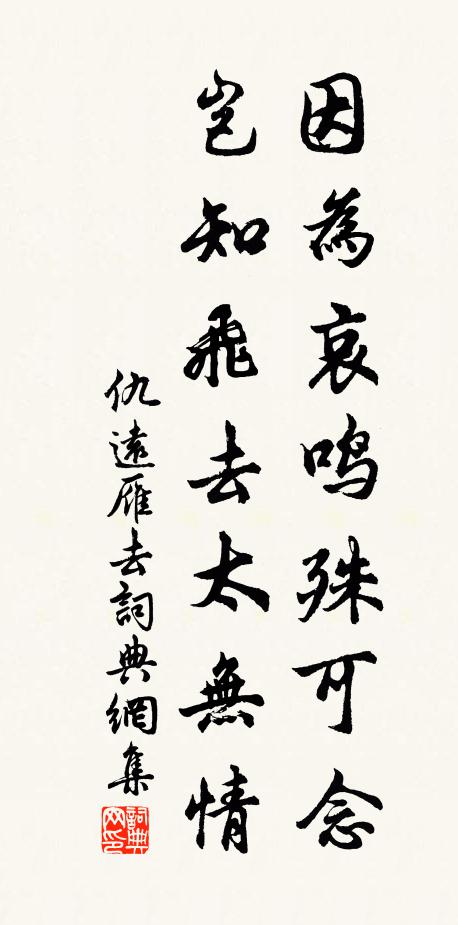 因為哀鳴殊可念
豈知飛去太無情
仇遠雁去詞典網集
詞典网印